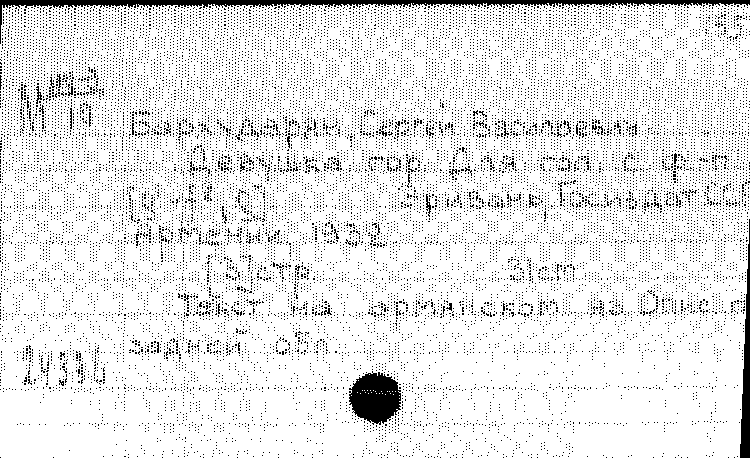 М 10
Бархударян, Сергей Васильевич
Девушка гор. Для гол. с ф-п.
Эривань, Госиздат ССР
Армении, 1932
[3] стр. 31 cm
Текст на армянском яз. Опис. п
задней обл.